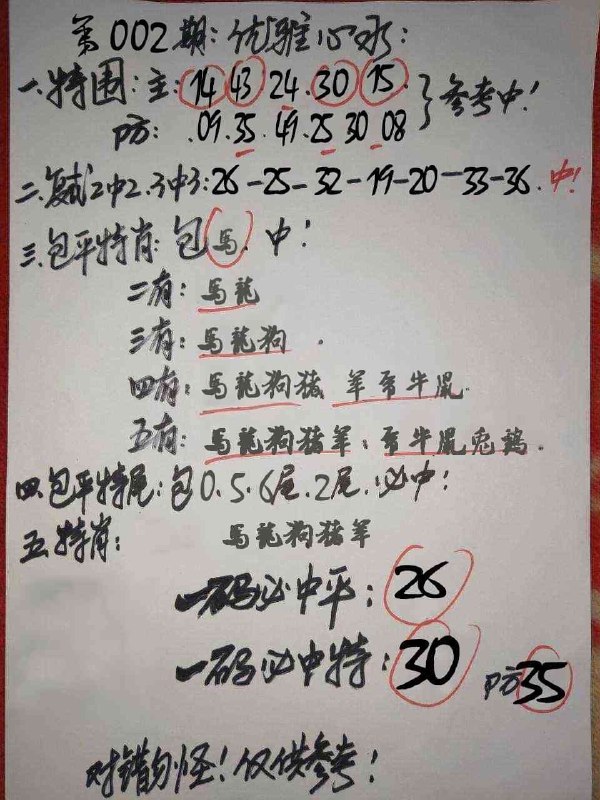 第002期:优雅心水:
一.特围:主:14 43 24 30 15 }参考中!
防: 09.35.49.25 30 08
二.复式2中2.3中3:26-25-32-19-20-33-36.中!
三.包平特肖:包馬.中!
二有:馬龍
三有:馬龍狗.
四有:馬龍狗猪 羊 牛鼠.
五有:馬龍狗猪羊、牛鼠兔鷄.
四.包平特尾:包0.5.6尾.2尾.必中!
五.特肖: 馬龍狗猪羊
一码必中平:26
一码必中特:30 防35
对错勿怪!仅供参考!